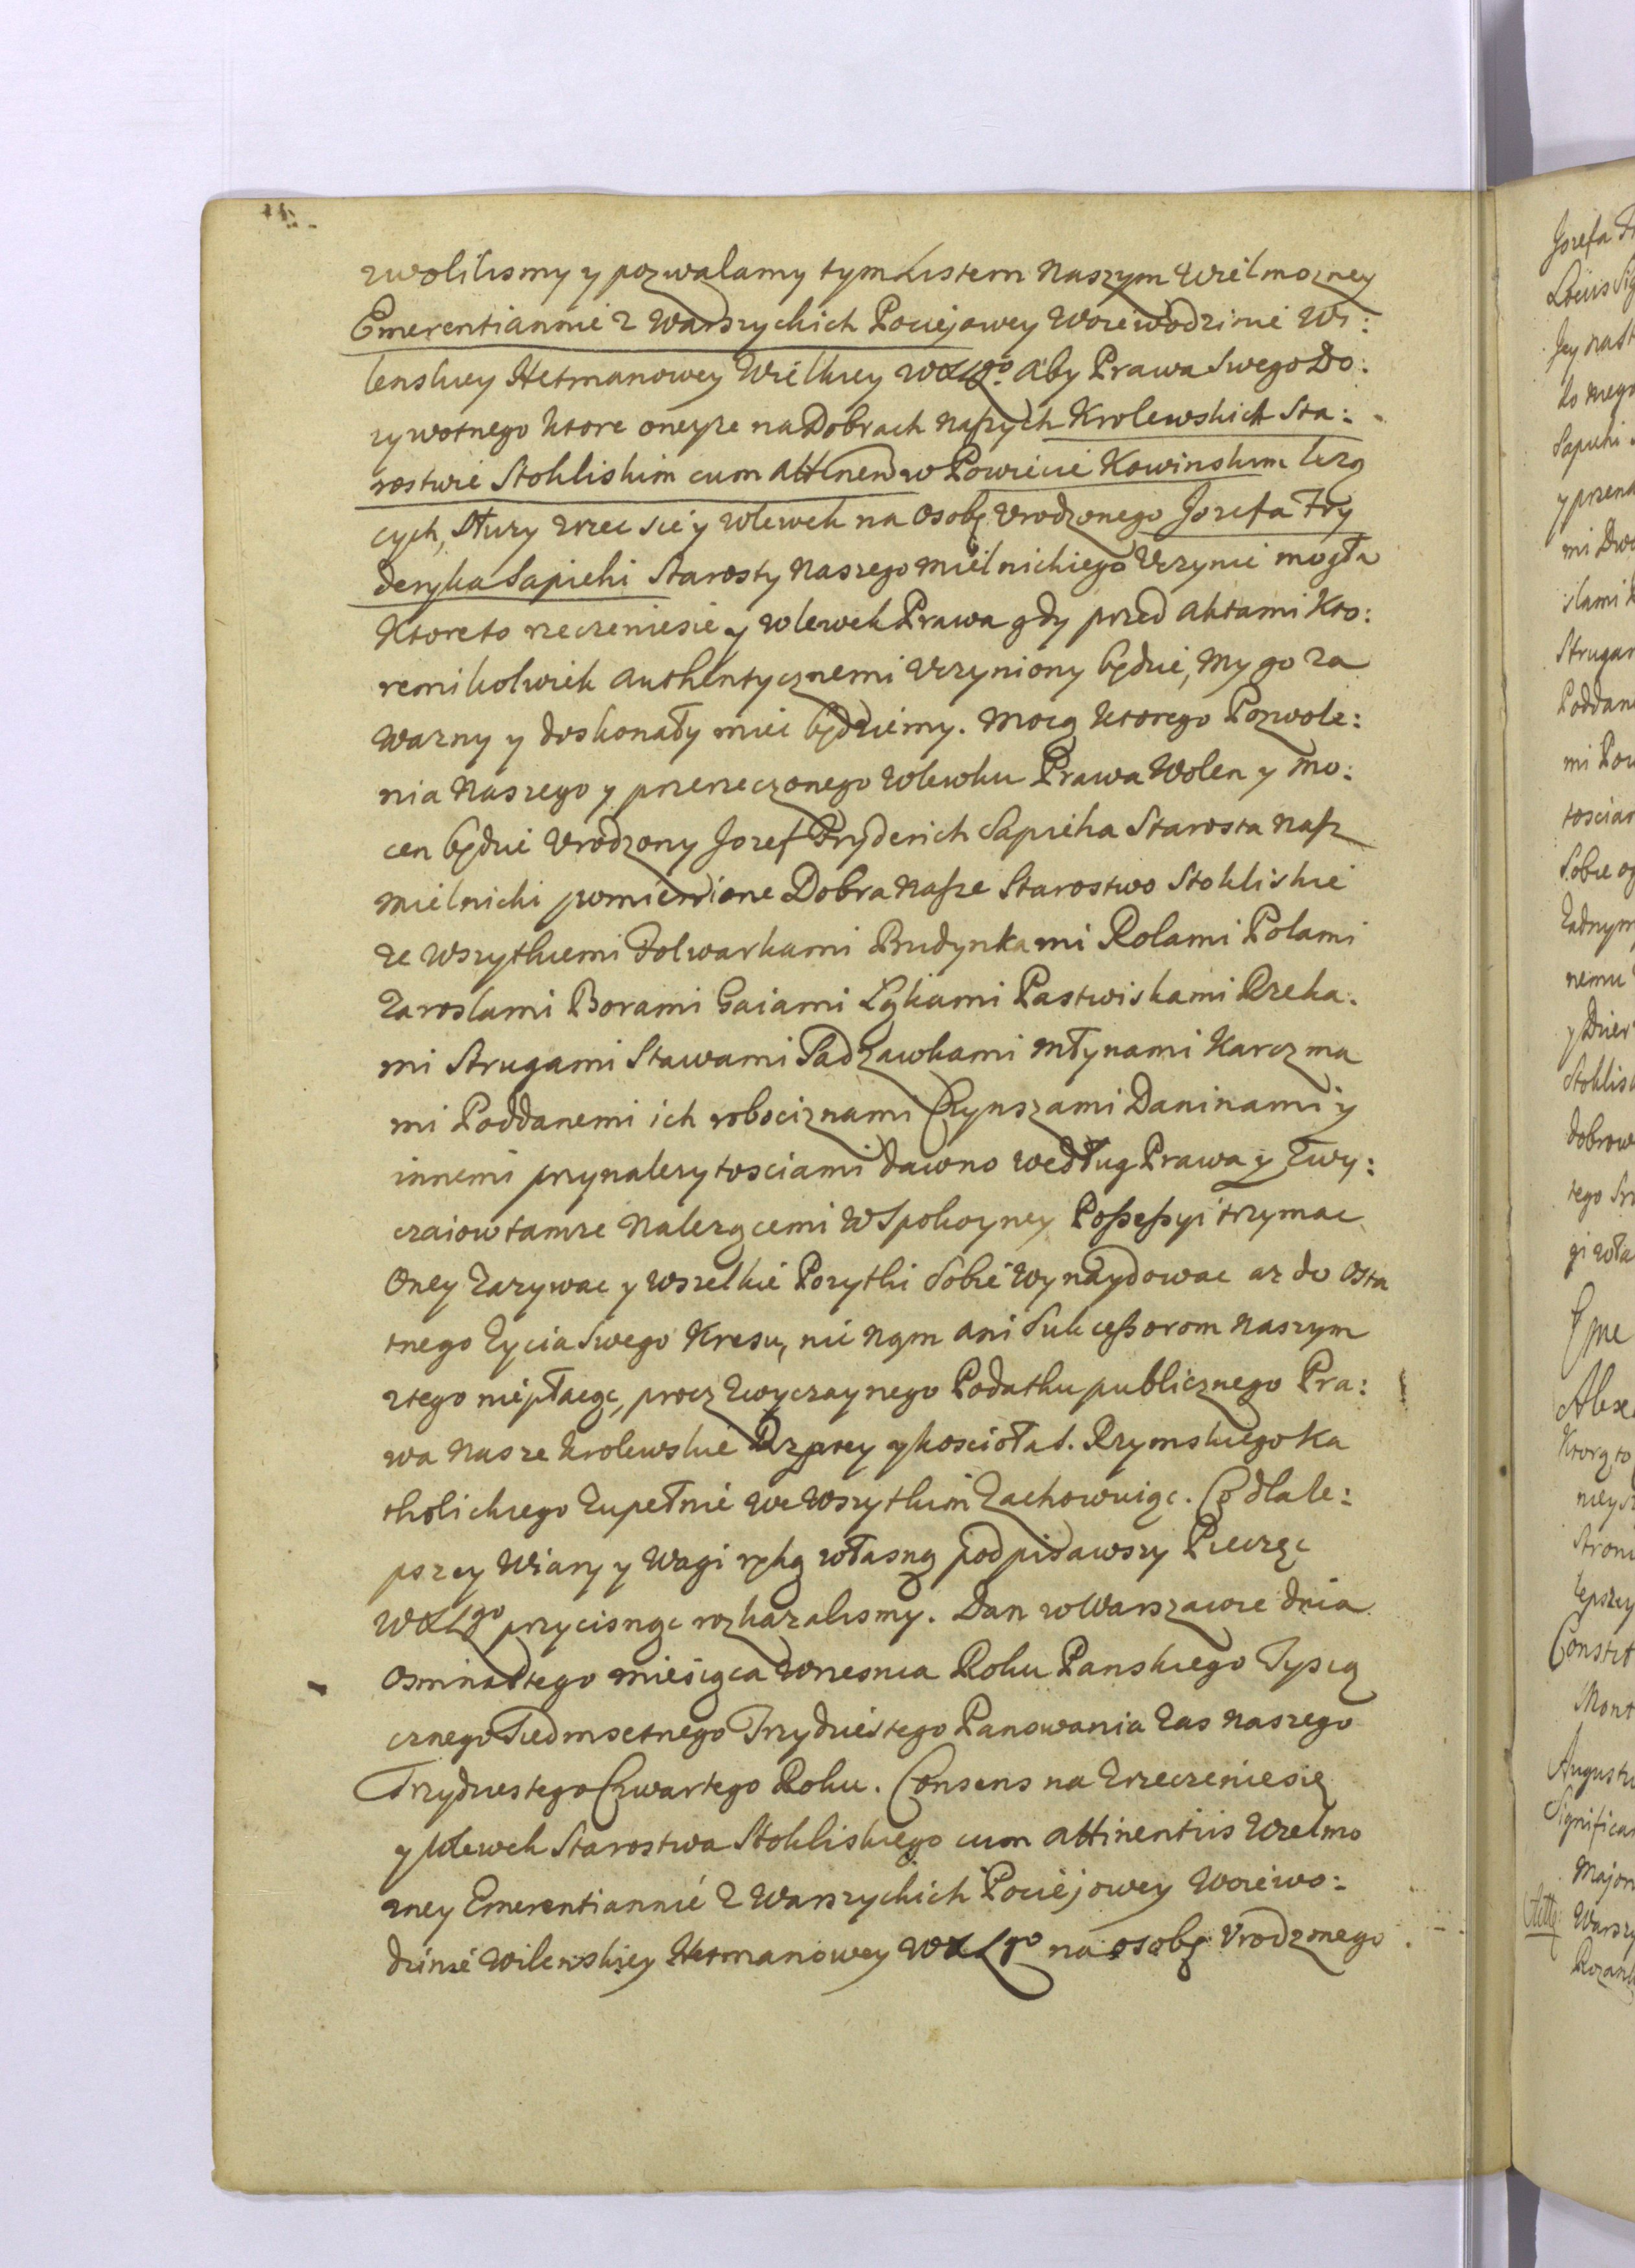 zwolilismy y pozwalamy tym Listem Naszym Wielmozney
Emerentiannie z Warszyckich Pociejowey Woiewodzinie Wi:
lenskiey Hetmanowey Wielkiey WXLgo. aby Prawa Swego Do:
zywotnego ktore oneyze na Dobrach Naszych Krolewskich Sta:
rostwie Stokliskim cum attinen w Powiecie Kowinskim lezą
cych, służy zrzec sie y wlewek na Osobę Vrodzonego Jozefa Fry
deryka Sapiehi Starosty Naszego Mielnickiego Vczynic mogła
Ktore to rzeczenie sie y wlewek Prawa gdy przed aktami Kto:
remi kolwiek authentycznemi Vczyniony będzie, My go za
Wazny y doskonały miec będziemy. Mocą ktorego Pozwole:
nia Naszego y przerzeczonego Wlewku Prawa Wolen y mo:
cen będzie Vrodzony Jozef Fryderich Sapieha Starosta Nasz
Mielnicki pomienione Dobra Nasze Starostwo Stokliskie
ze Wszytkiemi Folwarkami Budynkami Rolami Polami
Zaroslami Borami Gaiami Łąkami Pastwiskami Rzeka:
mi Strugami Stawami Sadzawkami Młynami Karczma
mi Poddanemi ich robociznami Czynszami Daninami y
innemi przynalezytosciami dawno według Prawa y Zwy:
czaiow tamze Nalezącemi W Spokoyney Possessyi trzymac
Oney Zazywac y Wszelkie Pozytki Sobie Wynaydowac az do Osta
tnego Zycia Swego Kresu, nic Nąm ani Sukcessorom Naszym
z tego niepłacąc, procz Zwyczaynego Podatku publicznego Pra:
wa Nasze Krolewskie Rzptey y kościoła S. Rzymskiego Ka
tholickiego Zupełnie we Wszytkim Zachowuiąc. Co dla le:
pszey Wiary y Wagi ręką własną podpisawszy Pieczęc
WXLgo przycisnąc rozkazalismy. Dan w Warszawie dnia
Osmnastego Miesiąca Wrzesnia Roku Panskiego Tysią
cznego Siedmsetnego Trzydziestego Panowania Zas Naszego
Trzydziestego Czwartego Roku. Consens na Zrzeczenie się
y Wlewek Starostwa Stokliskiego cum attinentiis Wielmo
zney Emerentiannie z Warszyckich Pociejowey Woiewo:
dzinie Wilenskiey Hetmanowey WXLgo na osobę Vrodzonego